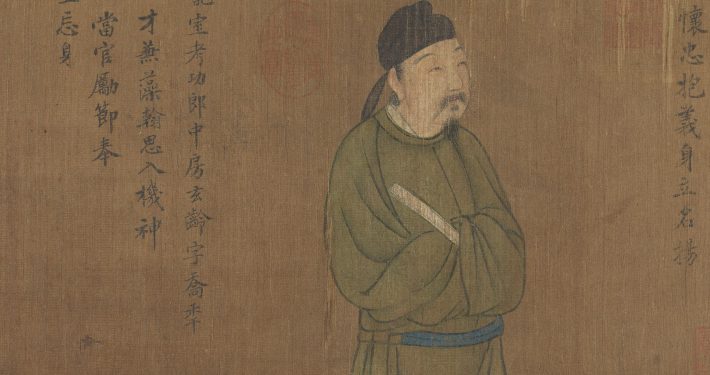 懷忠抱義身立名揚
室考功郎中房玄齡字喬年
才兼藻翰思入機神
當官勵節奉
忘身